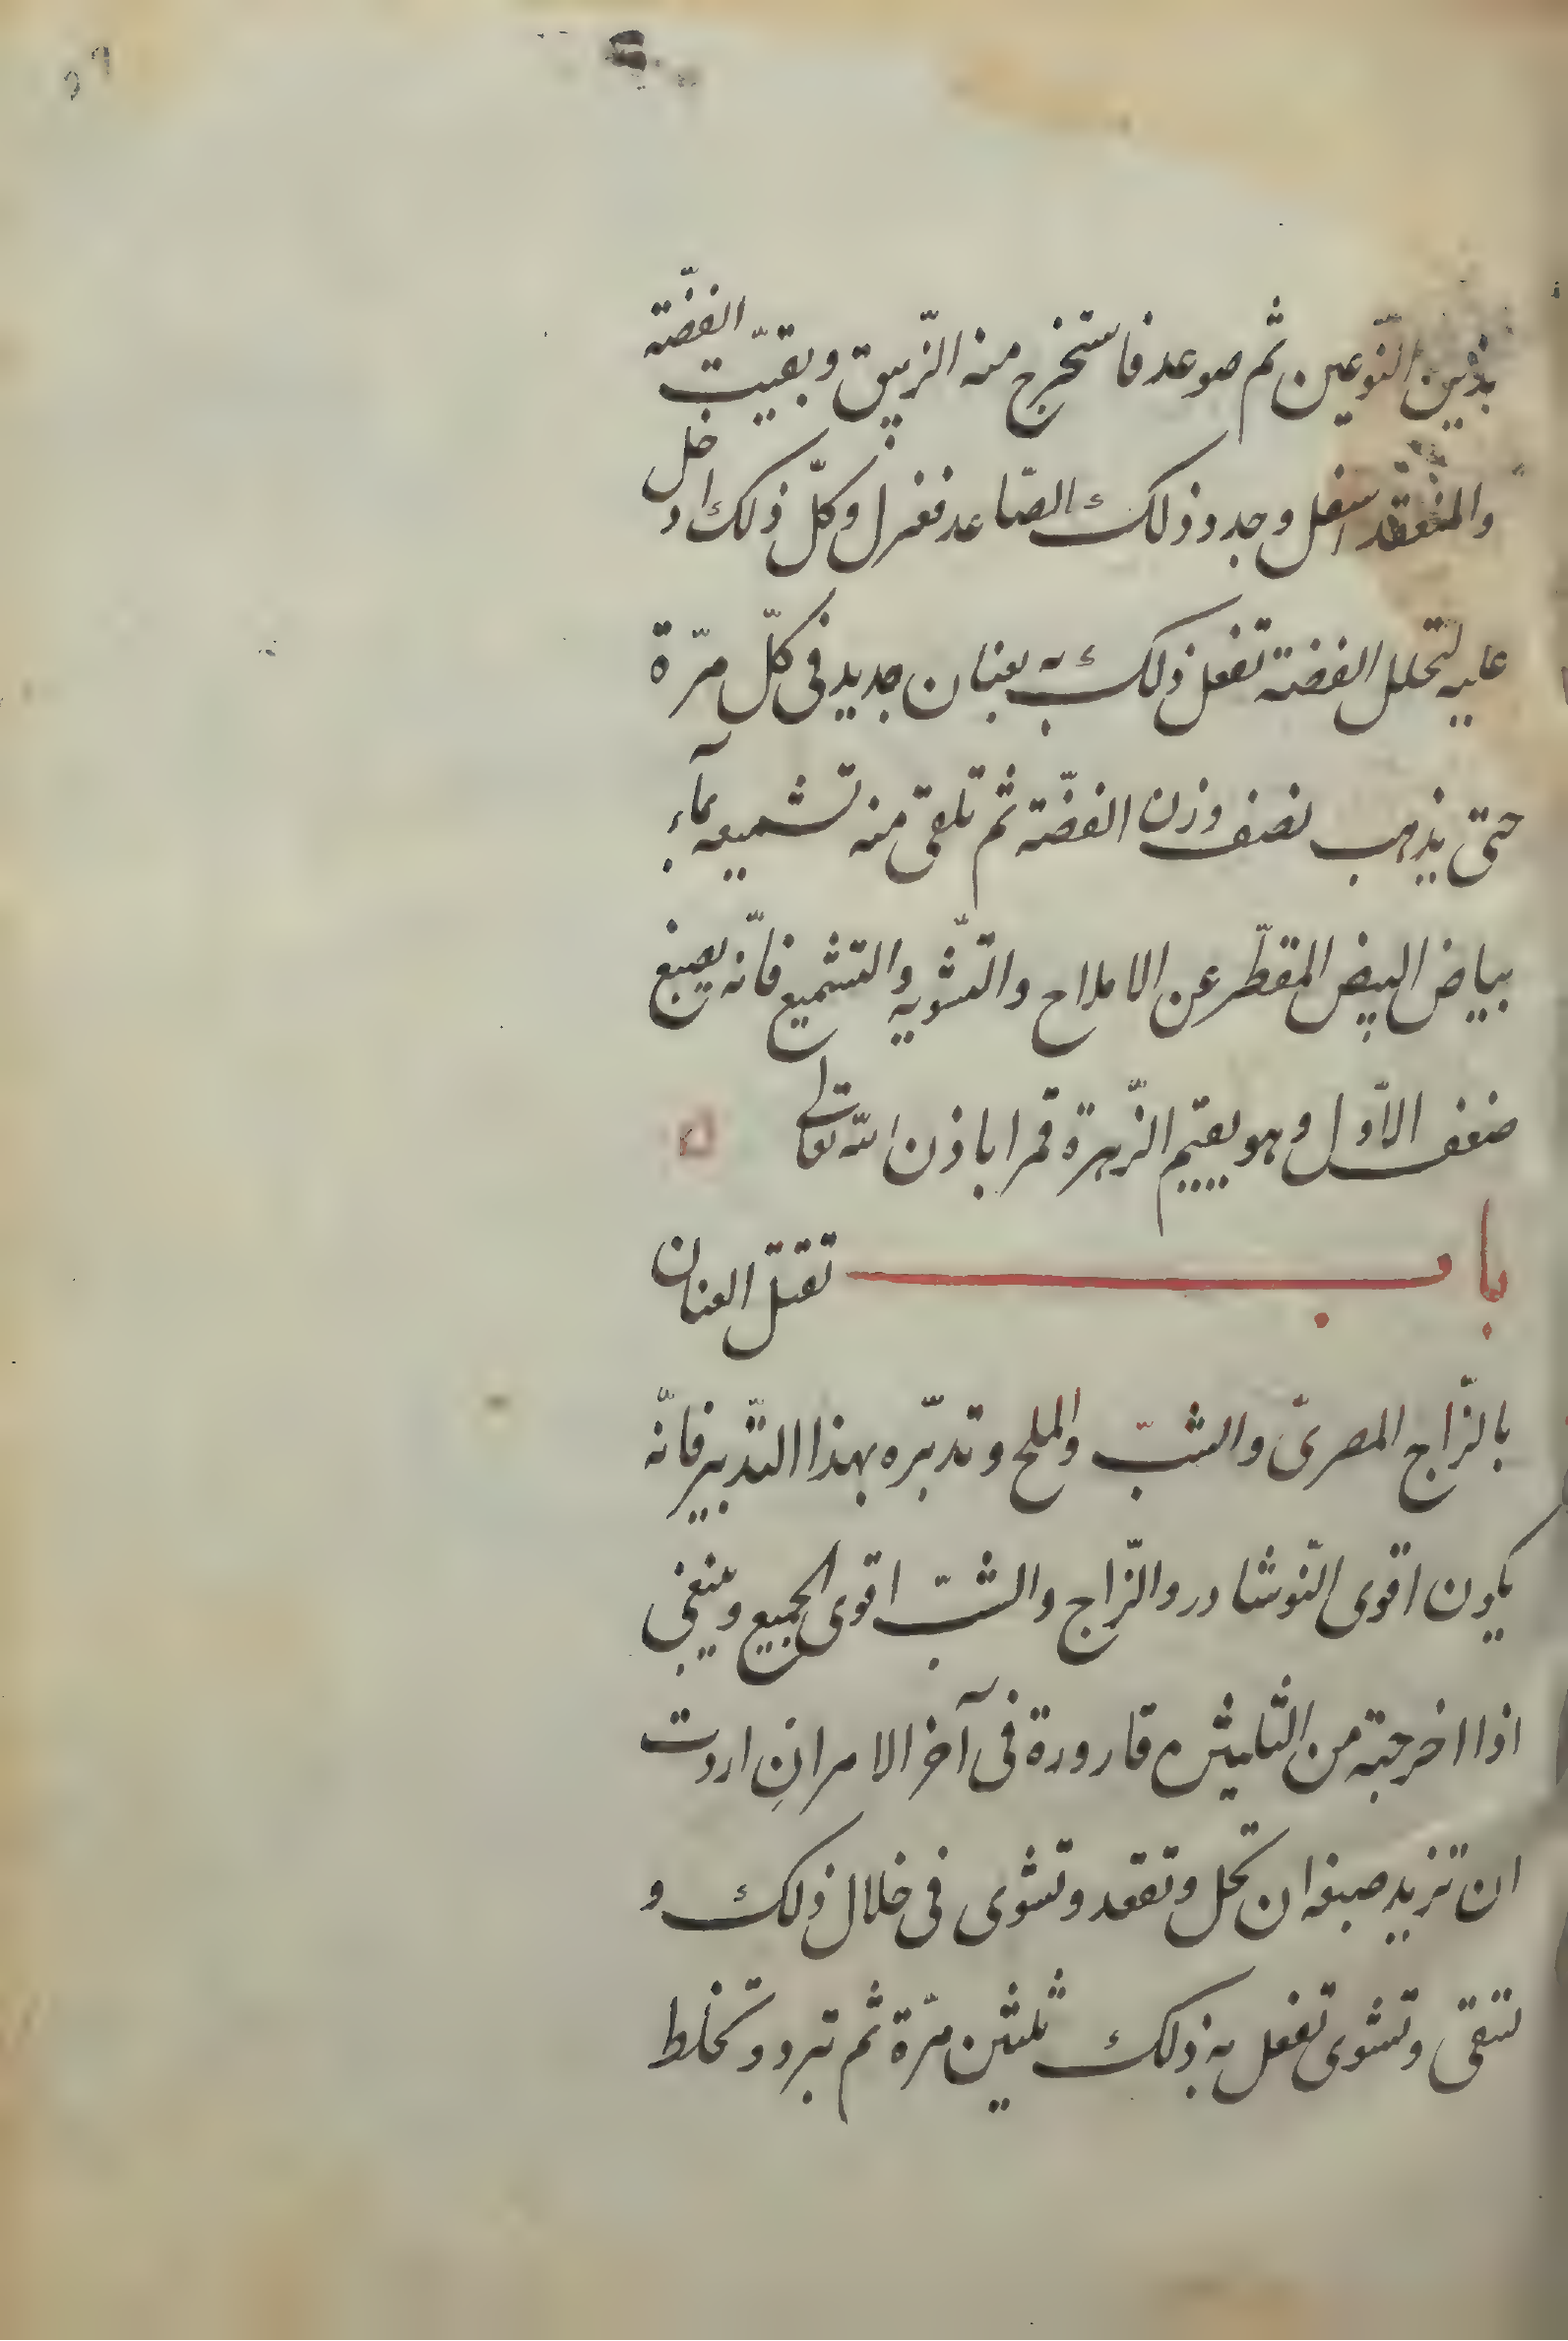 بذين النّوعين ثم صوعد فاستخرج منه الزّيبق وبقيت الفضّة
والمنعقد اسفل وجدد ذلك الصّاعد فغزل وكلّ ذلك ادخل
عليه لتحلل الفضة تفعل ذلك به بعنان جديد فى كلّ مرّة
حتى يذهب نصف وزن الفضّة ثم تلقى منه تشميعه بمآء
بياض البيض المقطّر عن الاملاح والتّشويه والتشميع فانّه يصبغ
ضعف الاوّل وهو يقيم الزّهرة قمرا باذن اللّه تعالى
باب تقتل العنان
بالزّاج المصرىّ والشبّ والملح وتدبّره بهذا التّدبير فانّه
يكون اقوى النّوشادر والزّاج والشبّ اقوى الجميع وينبغى
اذا اخرجته من قارورة فى آخر الامر انِ اردت
ان تزيد صبغه ان تحل وتعقد وتشوى فى خلال ذلك و
تسقى وتشوى تفعل به ذلك ثلثين مرّة ثم تبرد وتخلط